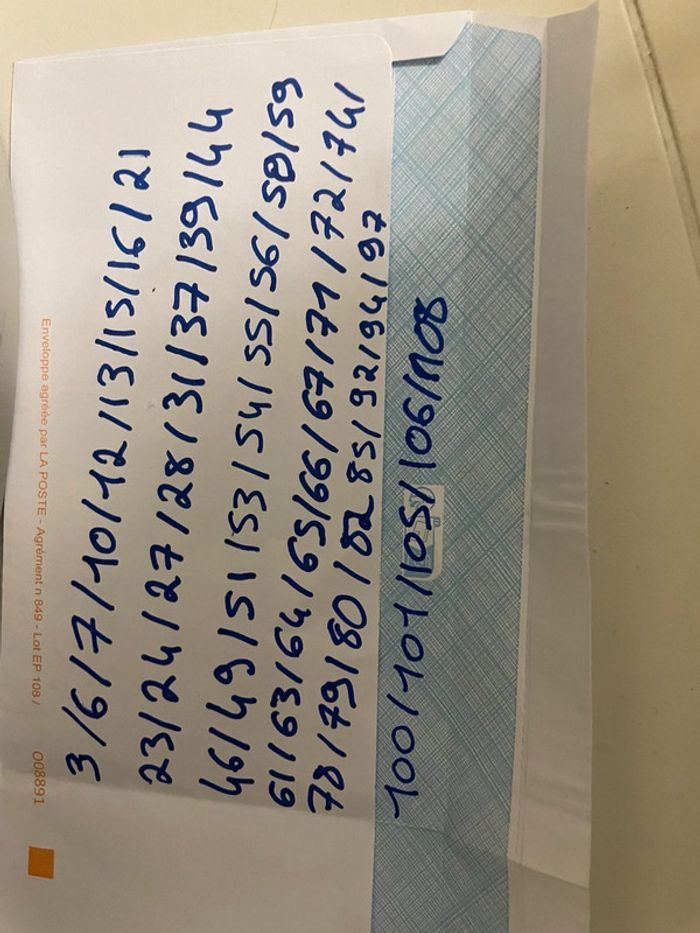 3/6/7/10/12/13/15/16/21
23/24/27/28/31/37/39/44
46/49/51/53/54/55/56/58/59
61/63/64/65/66/67/71/72/74/
78/79/80/82 85/92/94/97
100/101/105/106/108
Enveloppe agréée par LA POSTE - Agrément n 849 - Lot EP 108 / 008891